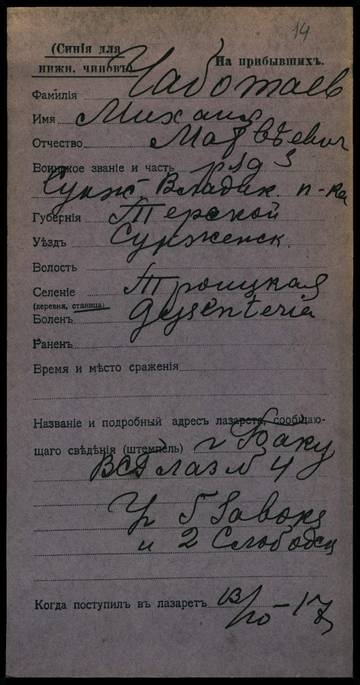 14
(Синія для
нижн. чиновъ)
На прибывшихъ.
Фамилія Чаботаев
Имя Михаил
Отчество Матвѣевич
Воинское званіе и часть ряд
Сунж-Владик. п-ка
Губернія Терской
Уѣздъ Сунженск.
Волость
Селеніе Троицкая
(деревня, станица)
Боленъ дизентерія
Раненъ
Время и мѣсто сраженія
Названіе и подробный адресъ лазарета, сообщаю-
щаго свѣдѣнія (штемпель) г Баку
ВСГ лаз № 4
Уг 5 Завокз
и 2 Слободск
Когда поступилъ въ лазаретъ 13/10-17